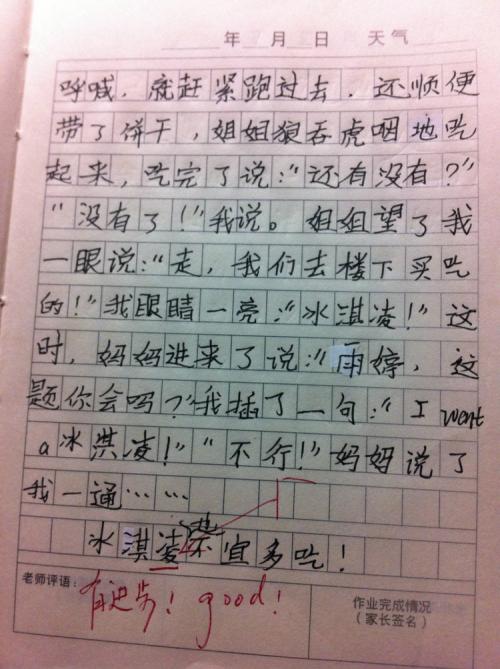 年 月 日 天气
呼喊，就赶紧跑过去，还顺便
带了饼干，姐姐狼吞虎咽地吃
起来，吃完了说：“还有没有？”
“没有了！”我说。姐姐望了我
一眼说：“走，我们去楼下买吃
的！”我眼睛一亮：“冰淇凌！”这
时，妈妈进来了说：“雨婷，这
题你会吗？”我插了一句：“I want
a冰淇凌！”“不行！”妈妈说了
我一通……
冰淇凌不宜多吃！
老师评语：
有进步！good！
作业完成情况
（家长签名）